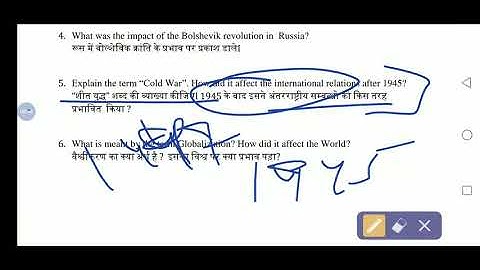 4. What was the impact of the Bolshevik revolution in Russia?
रूस में बोल्शेविक क्रांति के प्रभाव पर प्रकाश डाले।
5. Explain the term “Cold War”. How did it affect the international relations after 1945?
“शीत युद्ध” शब्द की व्याख्या कीजिए। 1945 के बाद इसने अंतरराष्ट्रीय सम्बन्धों को किस तरह
प्रभावित किया ?
6. What is meant by Globalization? How did it affect the World?
वैश्वीकरण का क्या अर्थ है ? इसका विश्व पर क्या प्रभाव पड़ा?
1945